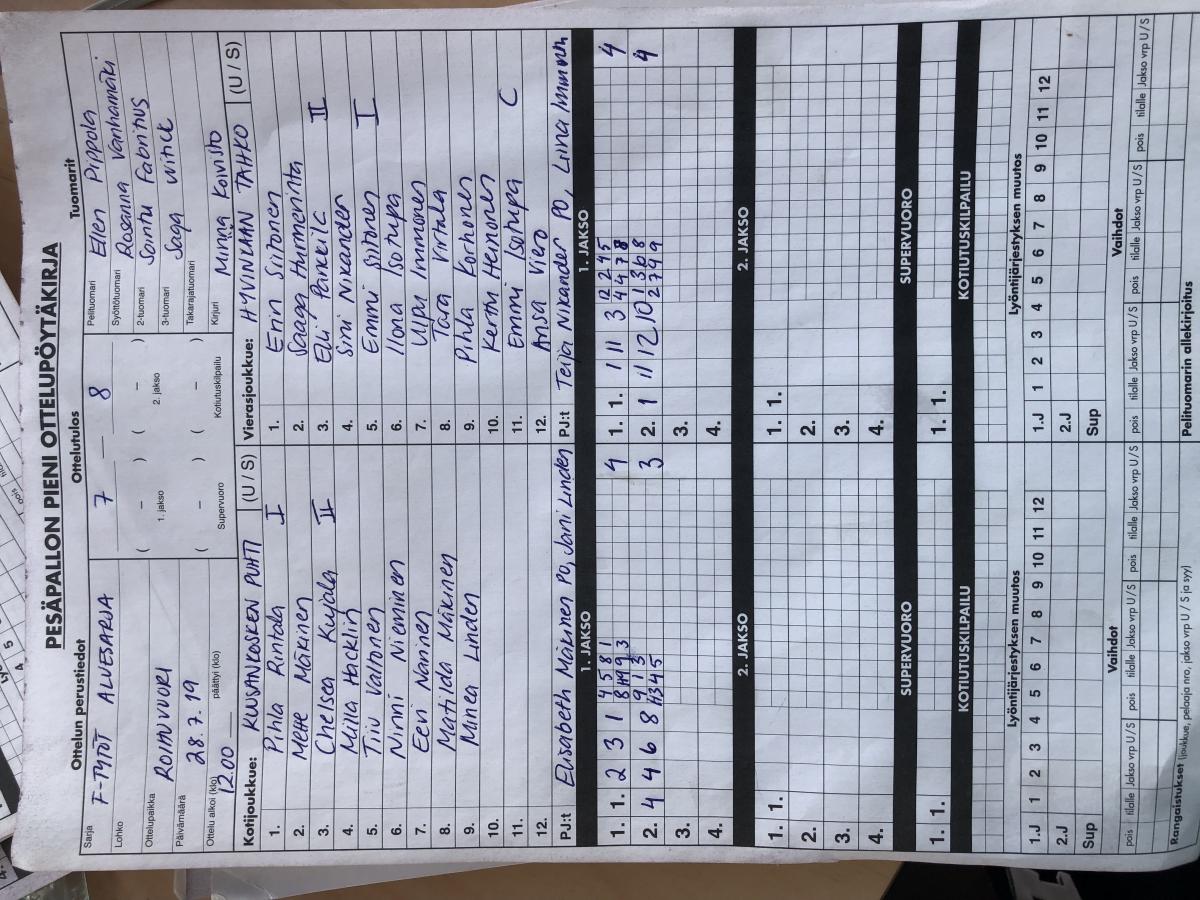 PESÄPALLON PIENI OTTELUPÖYTÄKIRJA
Ottelun perustiedot
Sarja F-TYTÖT ALUESARJA
Lohko
Ottelupaikka ROIHUVUORI
Päivämäärä 28.7.19
Ottelu alkoi (klo) 1200 päättyi (klo)
Ottelutulos
7 — 8
( – ) ( – )
1. jakso 2. jakso
( – ) ( – )
Supervuoro Kotiutuskilpailu
Tuomarit
Pelituomari Ellen Pippola
Syöttötuomari Rosanna Vanhamäki
2-tuomari Sointu Fabritius
3-tuomari Saga Witick
Takarajatuomari
Kirjuri Minna Koivisto
Kotijoukkue: KUUSANKOSKEN PUHTI (U / S)
1. Pihla Rintala I
2. Mette Mäkinen
3. Chelsea Kujala II
4. Milla Hacklin
5. Tiiu Valtonen
6. Ninni Nieminen
7. Eevi Naninen
8. Matilda Mäkinen
9. Minea Linden
10.
11.
12.
PJ:t Elisabeth Mäkinen PO, Jani Linden
Vierasjoukkue: HYVINKÄÄN TAHKO (U / S)
1. Enni Siitonen
2. Saaga Hurmerinta
3. Elli
II
4. Sini Nikander
5. Emmi Siitonen I
6. Ilona Isotupa
7. Ulpu Immonen
8. Tara Virtala
9. Pihla Korhonen
10. Kerttu Heinonen
11. Emmi Isotupa C
12. Ansa Viero
PJ:t Teija Nikander PO, Liina Immonen
1. JAKSO
1. 1. 2 3 1 4 5 8 1 4
2. 4 4 6 8 3
3.
4.
1. JAKSO
1. 1. 1 11 3 12 2 4 5 4 4 7 8 4
2. 1 11 12 10 1 3 6 8 2 7 4 9 4
3.
4.
2. JAKSO
1. 1.
2.
3.
4.
2. JAKSO
1. 1.
2.
3.
4.
SUPERVUORO
1. 1.
SUPERVUORO
1. 1.
KOTIUTUSKILPAILU
KOTIUTUSKILPAILU
Lyöntijärjestyksen muutos
1.J 1 2 3 4 5 6 7 8 9 10 11 12
2.J
Sup
Lyöntijärjestyksen muutos
1.J 1 2 3 4 5 6 7 8 9 10 11 12
2.J
Sup
Vaihdot
pois tilalle Jakso vrp U / S pois tilalle Jakso vrp U / S pois tilalle Jakso vrp U / S
Vaihdot
pois tilalle Jakso vrp U / S pois tilalle Jakso vrp U / S pois tilalle Jakso vrp U / S
Rangaistukset (joukkue, pelaaja nro, jakso U / S ja syy)
Pelituomarin allekirjoitus